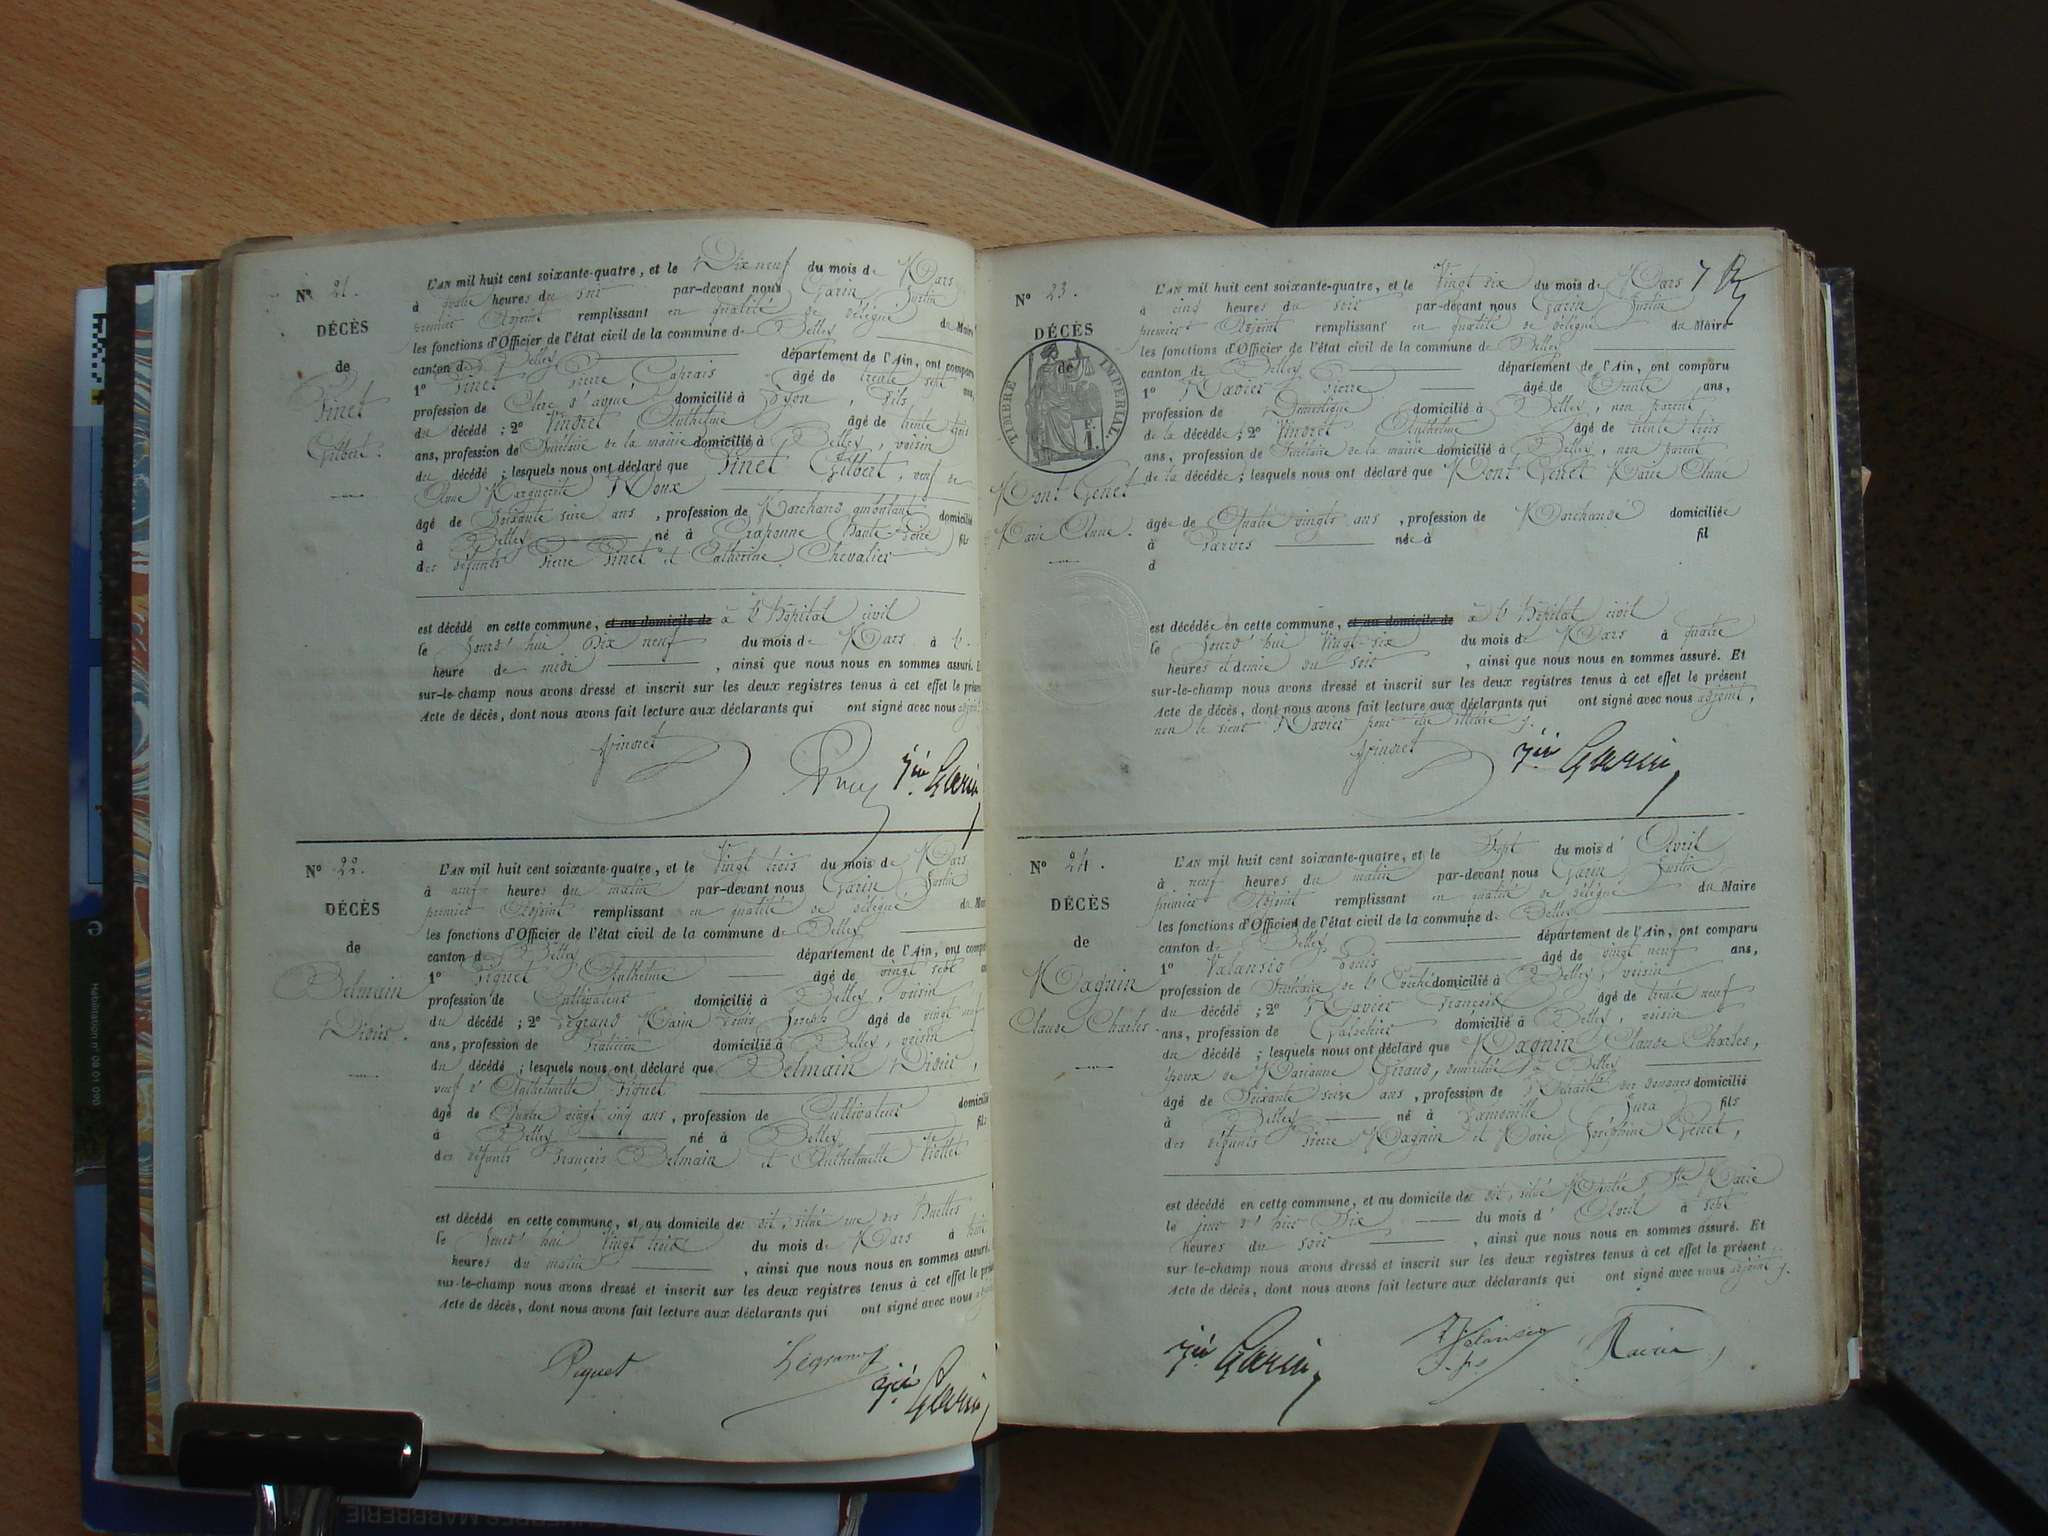 N° 21.
DÉCÈS
de
Pinet
Gilbert.
L'AN mil huit cent soixante-quatre, et le Dix neuf du mois de Mars
à quatre heures du soir par-devant nous Garin Justin
premier Adjoint remplissant en qualité de délégué du Maire
les fonctions d'Officier de l'état civil de la commune de Belley
canton de Belley département de l'Ain, ont comparu
1° Pinet Pierre Caprais âgé de trente sept ans,
profession de Clerc d'avoué domicilié à Lyon, fils
du décédé ; 2° Vindret Anthelme âgé de trente trois
ans, profession de Secrétaire de la mairie domicilié à Belley, voisin
du décédé ; lesquels nous ont déclaré que Pinet Gilbert, veuf de
Anne Marguerite Roux
âgé de Soixante seize ans, profession de Marchand ambulant domicilié
à Belley né à Craponne Haute-Loire fils
des défunts Pierre Pinet et Catherine Chevalier
est décédé en cette commune, et au domicile de à l'Hôpital civil
le Jourd'hui Dix neuf du mois de Mars à
heure de midi, ainsi que nous nous en sommes assuré. E
sur-le-champ nous avons dressé et inscrit sur les deux registres tenus à cet effet le présen
Acte de décès, dont nous avons fait lecture aux déclarants qui ont signé avec nous adjoint
Vindret
Jin Garin
N° 22.
DÉCÈS
de
Belmain
Didier.
L'AN mil huit cent soixante-quatre, et le Vingt trois du mois de Mars
à neuf heures du matin par-devant nous Garin Justin
premier Adjoint remplissant en qualité de délégué du Mai
les fonctions d'Officier de l'état civil de la commune de Belley
canton de Belley département de l'Ain, ont compa
1° Piguet Anthelme âgé de vingt sept an
profession de Cultivateur domicilié à Belley, voisin
du décédé ; 2° Legrand Louis Joseph âgé de vingt neuf
ans, profession de Praticien domicilié à Belley, voisin
du décédé ; lesquels nous ont déclaré que Belmain Didier,
veuf d'Anthelmette Piguet
âgé de Quatre vingt cinq ans, profession de Cultivateur domicilié
à Belley né à Belley fils
des défunts François Belmain et Anthelmette Trollet
est décédé en cette commune, et au domicile de dit, situé rue des Huttes
le Jourd'hui Vingt trois du mois de Mars à huit
heures du matin, ainsi que nous nous en sommes assuré.
sur-le-champ nous avons dressé et inscrit sur les deux registres tenus à cet effet le prése
Acte de décès, dont nous avons fait lecture aux déclarants qui ont signé avec nous adjoint
Piguet Legrand
Jin Garin
7
N° 23.
DÉCÈS
de
TIMBRE IMPÉRIAL
Mont Genet
Marie Anne.
L'AN mil huit cent soixante-quatre, et le Vingt six du mois de Mars
à cinq heures du soir par-devant nous Garin Justin
premier Adjoint remplissant en qualité de délégué du Maire
les fonctions d'Officier de l'état civil de la commune de Belley
canton de Belley département de l'Ain, ont comparu
1° Ravier Pierre âgé de Trente ans,
profession de Domestique domicilié à Belley, non parent
de la décédée ; 2° Vindret Anthelme âgé de trente trois
ans, profession de Secrétaire de la mairie domicilié à Belley, non parent
de la décédée ; lesquels nous ont déclaré que Mont Genet Marie Anne
âgée de Quatre vingts ans, profession de Marchande domiciliée
à Parves née à fil
d
est décédée en cette commune, et au domicile de à l'Hôpital civil
le Jourd'hui Vingt six du mois de Mars à quatre
heures et demie du soir, ainsi que nous nous en sommes assuré. Et
sur-le-champ nous avons dressé et inscrit sur les deux registres tenus à cet effet le présent
Acte de décès, dont nous avons fait lecture aux déclarants qui ont signé avec nous adjoint,
non le sieur Ravier pour être illétré
Vindret Jin Garin
N° 24.
DÉCÈS
de
Magnin
Claude Charles.
L'AN mil huit cent soixante-quatre, et le Sept du mois d'Avril
à neuf heures du matin par-devant nous Garin Justin
premier Adjoint remplissant en qualité de délégué du Maire
les fonctions d'Officier de l'état civil de la commune de Belley
canton de Belley département de l'Ain, ont comparu
1° Valansio Louis âgé de vingt neuf ans,
profession de Secrétaire de l'Evêché domicilié à Belley, voisin
du décédé ; 2° Ravier François âgé de trente neuf
ans, profession de Galochier domicilié à Belley, voisin
du décédé ; lesquels nous ont déclaré que Magnin Claude Charles,
époux de Marianne Giraud, domiciliée à Belley
âgé de Soixante seize ans, profession de Retraité des douanes domicilié
à Belley né à Lamoille Jura fils
des défunts Pierre Magnin et Marie Joséphine Genet,
est décédé en cette commune, et au domicile de dit, situé Montée Ste Marie
le jour d'hier Six du mois d'Avril à sept
heures du soir, ainsi que nous nous en sommes assuré. Et
sur le-champ nous avons dressé et inscrit sur les deux registres tenus à cet effet le présent
Acte de décès, dont nous avons fait lecture aux déclarants qui ont signé avec nous adjoint
Jin Garin Valansio Ravier
Habilitation n° 08 01 090